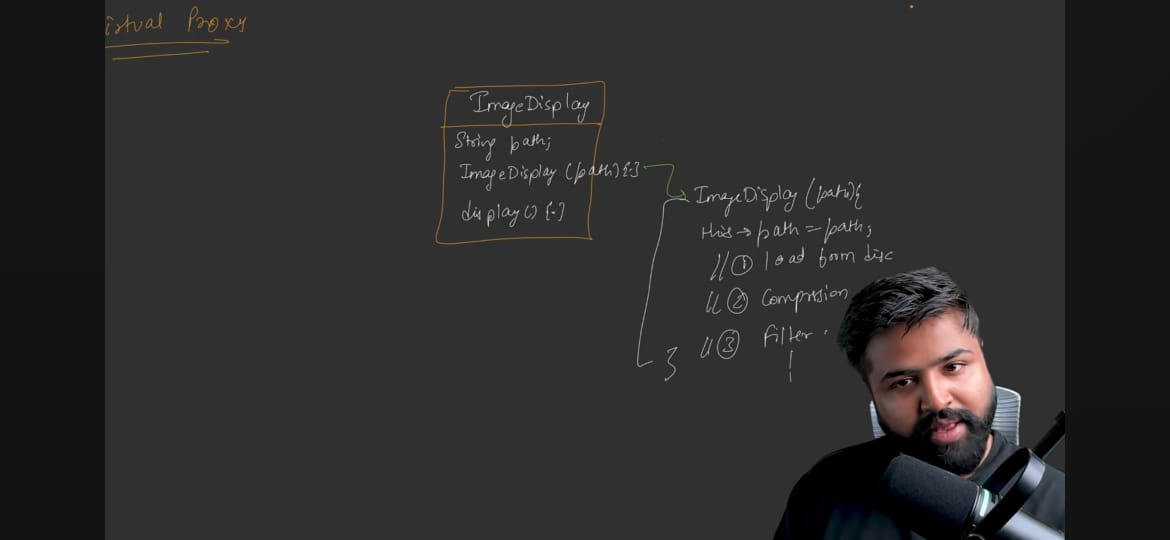 irtual Proxy
ImageDisplay
String path;
ImageDisplay (path) {-}
display() {-}
ImageDisplay (path) {
this → path = path;
// ① load from disc
// ② Compression
// ③ Filter .
}